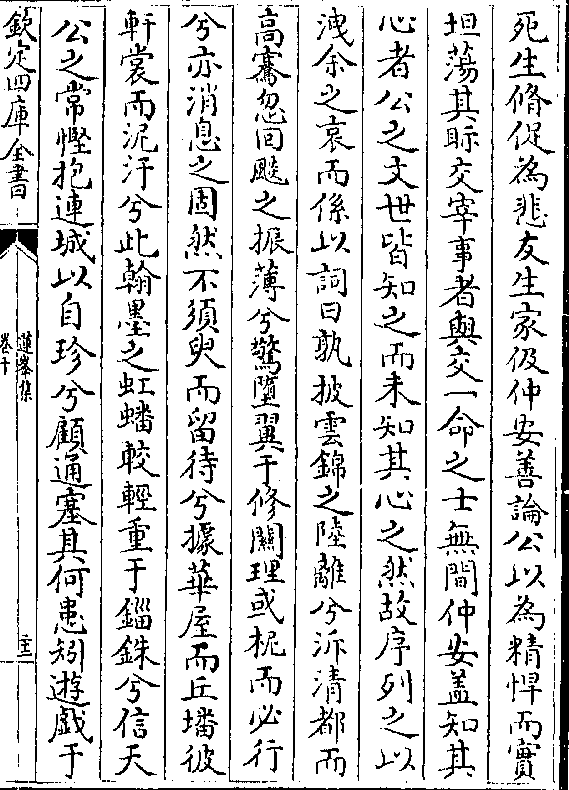 死生脩促為悲友生家伋仲安善論公以為精悍而實
坦蕩其眎交宰事者與交一命之士無間仲安盖知其
心者公之文世皆知之而未知其心之然故序列之以
洩余之哀而係以詞曰孰披雲錦之陸離兮泝清都而
高騫忽回飇之振薄兮驚墮翼于修關理或柅而必行
兮亦消息之固然不須臾而留待兮據華屋而丘墦彼
軒裳而泥汙兮此翰墨之虹蟠較輕重于錙銖兮信天
公之常慳抱連城以自珍兮顧通塞其何患矧遊戯于
欽定四庫全書
蓮峯集
卷十